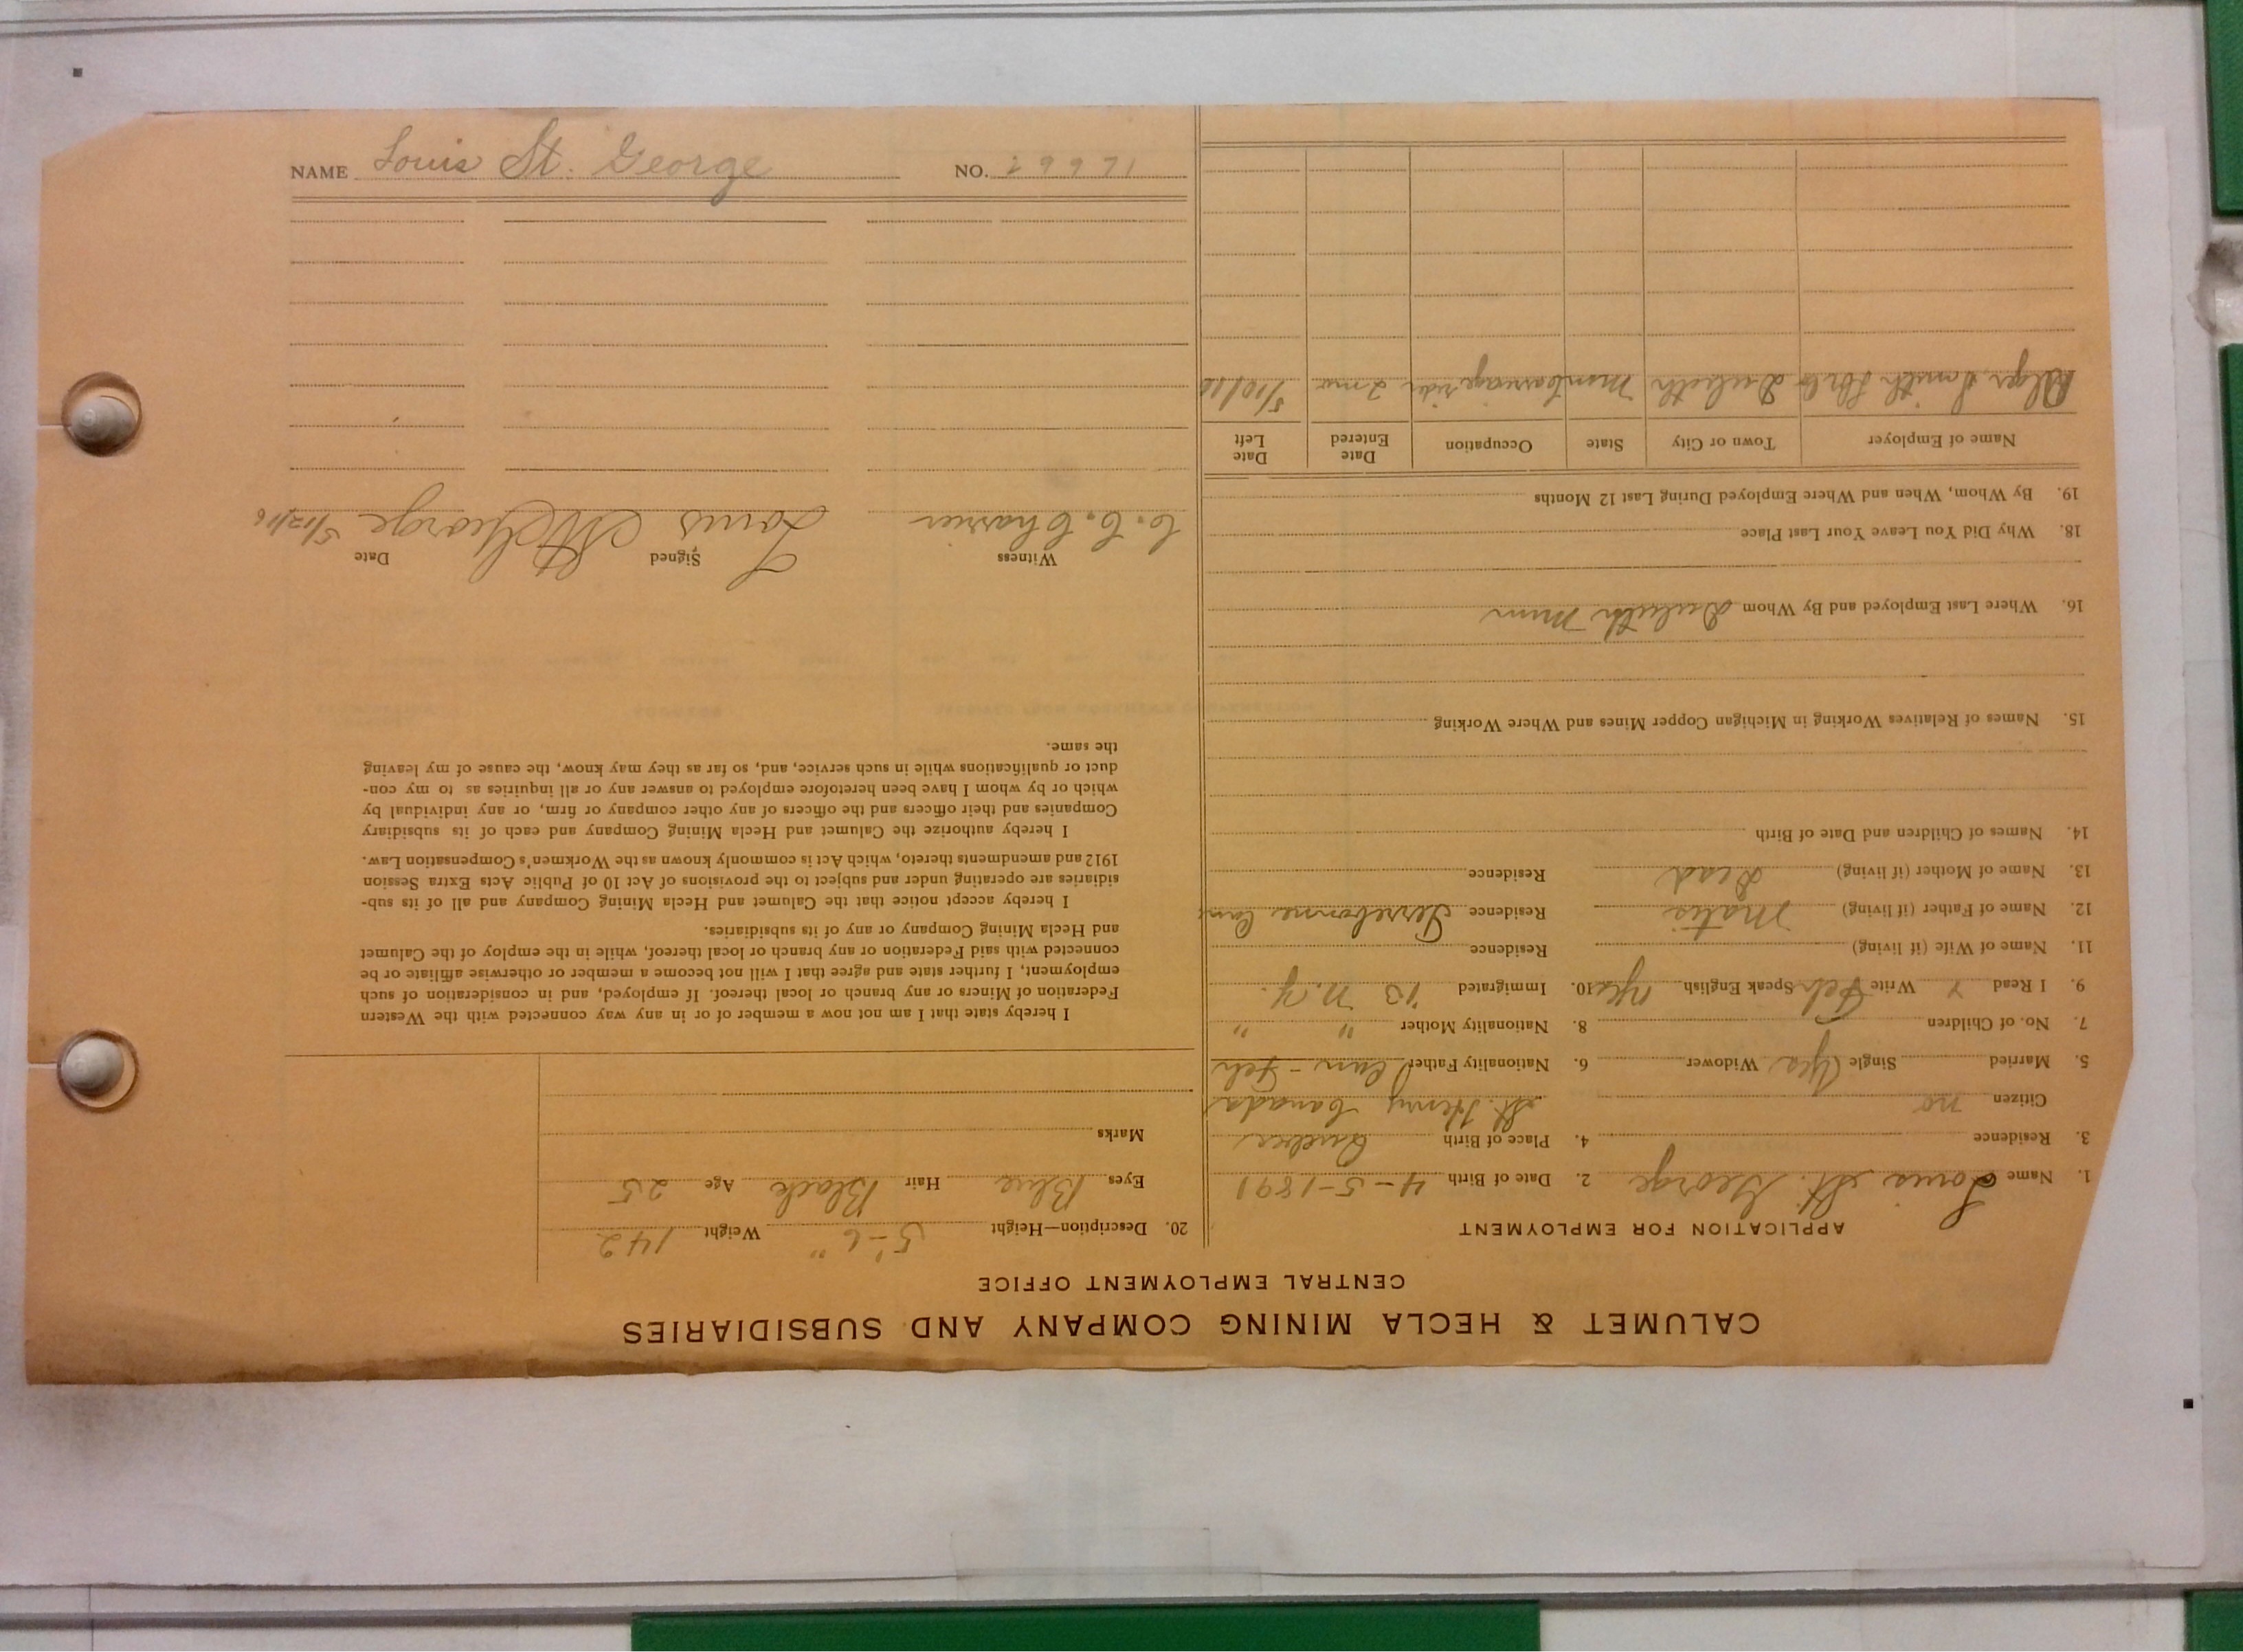 CALUMET & HECLA MINING COMPANY AND SUBSIDIARIES
CENTRAL EMPLOYMENT OFFICE
APPLICATION FOR EMPLOYMENT
1. Name Louis St. George 2. Date of Birth 4-5-1891
3. Residence 4. Place of Birth Quebec
Citizen no St. Henry Canada
5. Married Single Yes Widower 6. Nationality Father Can-Fch
7. No. of Children 8. Nationality Mother " "
9. I Read Write Fch Speak English yes 10. Immigrated '13 N.Y.
11. Name of Wife (if living) Residence
12. Name of Father (if living) Residence Terrebonne Can
13. Name of Mother (if living) Dead Residence
14. Names of Children and Date of Birth
15. Names of Relatives Working in Michigan Copper Mines and Where Working
16. Where Last Employed and By Whom Duluth Minn
18. Why Did You Leave Your Last Place
19. By Whom, When and Where Employed During Last 12 Months
Name of Employer Town or City State Occupation Date Entered Date Left
Alger, Smith Duluth Minn 2 mo 5/10/16
20. Description—Height 5'-6" Weight 142
Eyes Blue Hair Black Age 25
Marks
I hereby state that I am not now a member of or in any way connected with the Western
Federation of Miners or any branch or local thereof. If employed, and in consideration of such
employment, I further state and agree that I will not become a member or otherwise affiliate or be
connected with said Federation or any branch or local thereof, while in the employ of the Calumet
and Hecla Mining Company or any of its subsidiaries.
I hereby accept notice that the Calumet and Hecla Mining Company and all of its sub-
sidiaries are operating under and subject to the provisions of Act 10 of Public Acts Extra Session
1912 and amendments thereto, which Act is commonly known as the Workmen's Compensation Law.
I hereby authorize the Calumet and Hecla Mining Company and each of its subsidiary
Companies and their officers and the officers of any other company or firm, or any individual by
which or by whom I have been heretofore employed to answer any or all inquiries as to my con-
duct or qualifications while in such service, and, so far as they may know, the cause of my leaving
the same.
Witness Signed Date
C. C. Charrier Louis St George 5/12/16
NAME Louis St. George NO. 29971